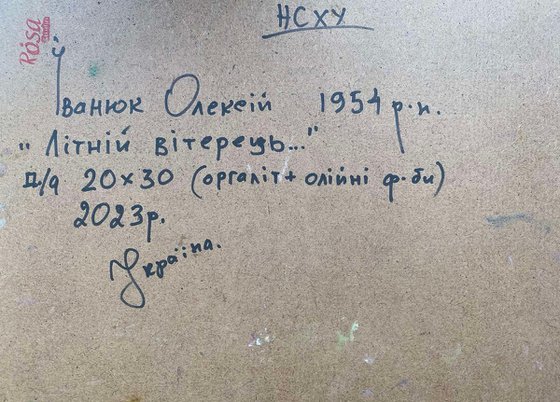 Rósa
НСХУ
Іванюк Олексій 1954 р.н.
"Літній вітерець..."
20×30 (оргаліт + олійні ф-би)
2023р.
Україна.